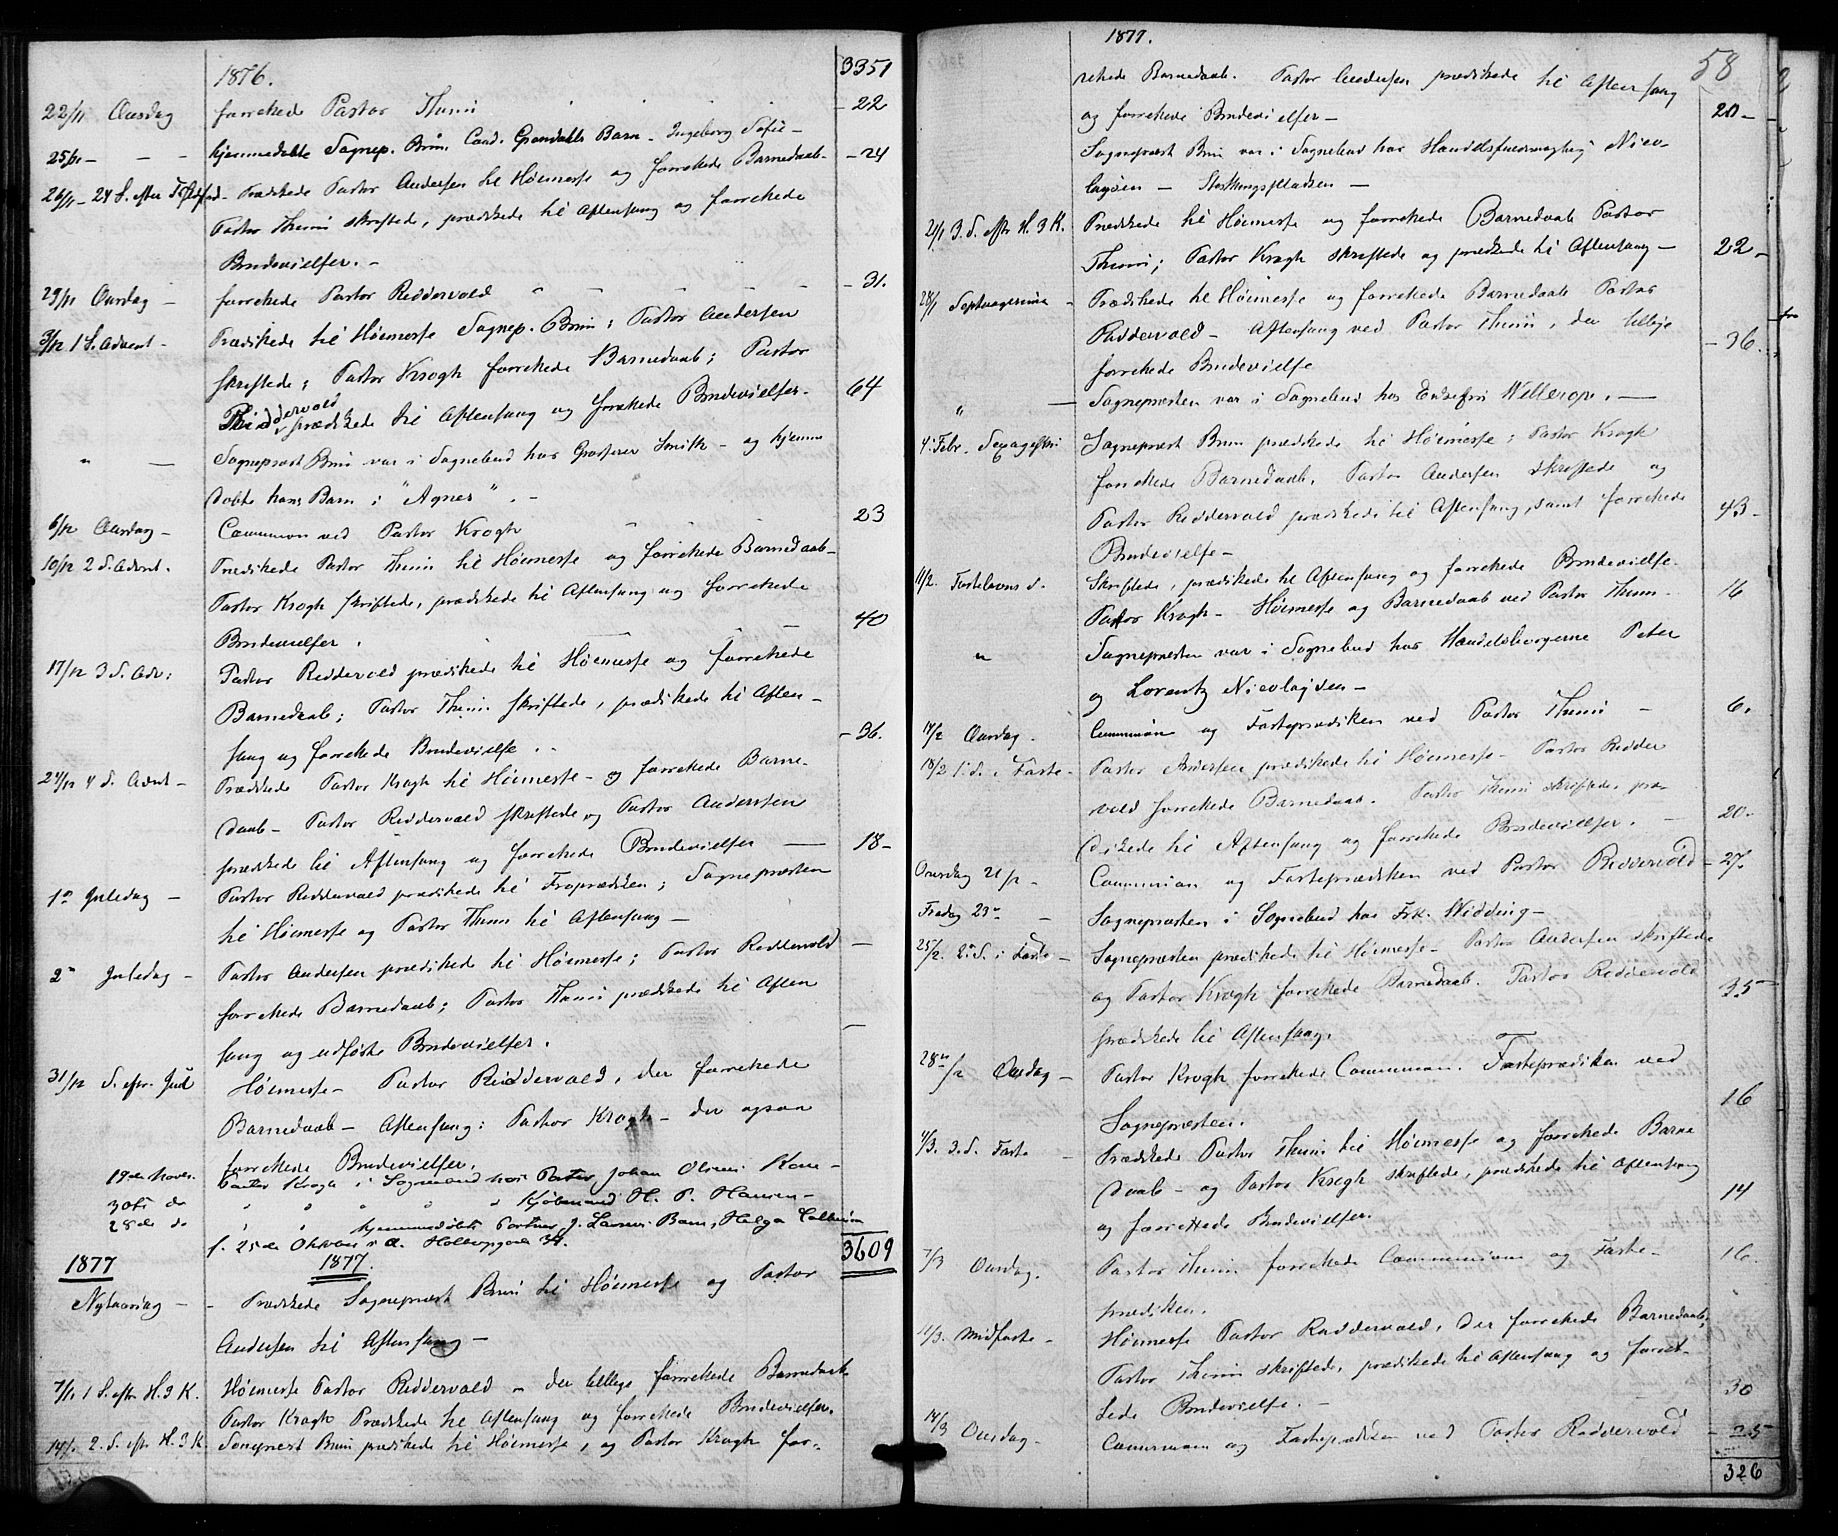 1876.
3351
22/11 Onsdag forrettede Pastor Thum - 22
25/11 - - - hjemmedøbte Sognep. Brun Cand. Grøndahls Barn - Ingeborg Sofie -
26/11 - 24 S. efter Trefold - Prædikede Pastor Andersen til Høimesse og forrettede Barnedaab - - 24
Pastor Thum skriftede, prædikede til Aftensang og forrettede
Brudevielser. -
29/11 Onsdag - forrettede Pastor Riddervold - 31.
3/12 1 S. Advent - Prædikede til Høimesse Sognep. Brun; Pastor Andersen
skriftede; Pastor Krogh forrettede Barnedaab; Pastor
Riddervold prædikede til Aftensang og forrettede Brudevielser. 64
" — Sognepræst Brun var i Sognebud hos Smith - og hjemme
døbte hans Barn: "Agnes". -
6/12 Onsdag - Communion ved Pastor Krogh 23
10/12 2 S. Advent. Prædikede Pastor Thum til Høimesse og forrettede Barnedaab -
Pastor Krogh skriftede, prædikede til Aftensang og forrettede
Brudevielser. 40
17/12 3 S. Adv: Pastor Riddervold prædikede til Høimesse og forrettede
Barnedaab; Pastor Thum skriftede, prædikede til Aften-
sang og forrettede Brudevielse. - 36.
24/12 4 S. Advent - Prædikede Pastor Krogh til Høimesse - og forrettede Barne-
daab - Pastor Riddervold skriftede og Pastor Andersen
prædikede til Aftensang og forrettede Brudevielser — 18 -
1ste Juledag - Pastor Riddervold prædikede til Froprædiken; Sognepræsten
til Høimesse og Pastor Thum til Aftensang -
2den Juledag - Pastor Andersen prædikede til Høimesse; Pastor Riddervold
forrettede Barnedaab; Pastor Thum prædikede til Aften
sang og udførte Brudevielser.
31/12 S. eftr. Jul Høimesse - Pastor Riddervold, der forrettede
Barnedaab - Aftensang: Pastor Krogh - der ogsaa
forrettede Brudevielser.
19de Novbr. Pastor Krogh i Sognebud hos Johan Olsens Kone -
30te do " " " " Kjøbmand H. P. Hansen -
28de do " " hjemmedøbte J. Larsens Barn, Helga
f. 25de Oktober 34.
3609
1877 1877.
Nytaarsdag - - Prædikede Sognepræst Brun til Høimesse og Pastor
Andersen til Aftensang -
7/1 1 S. eftr H. 3 K. Høimesse Pastor Riddervold - der tillige forrettede Barnedaab
Pastor Krogh Prædikede til Aftensang og forrettede Brudevielser.
14/1. 2. S. eftr H. 3 K. Sognepræst Brun prædikede til Høimesse, og Pastor Krogh for-
1877.
58
rettede Barnedaab. Pastor Andersen prædikede til Aftensang
og forrettede Brudevielser - 20 -
Sognepræst Brun var i Sognebud hos Handelsfuldmægtig Nico-
laysen - Storthingspladsen -
21/1 3. S. eftr H. 3 K. Prædikede til Høimesse og forrettede Barnedaab Pastor
Thum; Pastor Krogh skriftede og prædikede til Aftensang - 22 -
28/1 Septuagesima - Prædikede til Høimesse og forrettede Barnedaab Pastor
Riddervold - Aftensang ved Pastor Thum, der tillige
forrettede Brudevielse - 36.
" — Sognepræsten var i Sognebud hos Enkefru Wellerop. —
4. Febr. Sexagesima Sognepræst Brun prædikede til Høimesse; Pastor Krogh
forrettede Barnedaab, Pastor Andersen skriftede og
Pastor Riddervold prædikede til Aftensang, samt forrettede
Brudevielse - 43 -
11/2. Fastelavns S. Skriftede, prædikede til Aftensang og forrettede Brudevielse
Pastor Krogh - Høimesse og Barnedaab ved Pastor Thum - 16
" Sognepræsten var i Sognebud hos Handelsborgerne Peter
og Lorentz Nicolajsen -
14/2 Onsdag. Communion og Fasteprædiken ved Pastor Thum - 6.
18/2 1. S. i Faste - Pastor Andersen prædikede til Høimesse - Pastor Ridder
vold forrettede Barnedaab. Pastor Thum skriftede, præ-
dikede til Aftensang og forrettede Brudevielser. — 20.
Onsdag 21/2 - Communion og Fasteprædiken ved Pastor Riddervold - 27.
Fredag 23de - Sognepræsten i Sognebud hos Frk. Widding -
25/2. 2. S. i Faste - Sognepræsten prædikede til Høimesse - Pastor Andersen skriftede
og Pastor Krogh forrettede Barnedaab. Pastor Riddervold
prædikede til Aftensang. 35
28de/2 Onsdag - Pastor Krogh forrettede Communion. Fasteprædiken ved
Sognepræsten. 16
4/3. 3. S. Faste - Prædikede Pastor Thum til Høimesse og forrettede Barne
daab - og Pastor Krogh skriftede, prædikede til Aftensang
og forrettede Brudevielser. 14
7/3 Onsdag. Pastor Thum forrettede Communion og Faste-
prædiken. 16.
11/3. Midfaste - Høimesse Pastor Riddervold, der forrettede Barnedaab,
Pastor Thum skriftede, prædikede til Aftensang og forret-
tede Brudevielse. - 30
14/3 Onsdag - Communion og Fasteprædiken ved Pastor Riddervold - 25
326